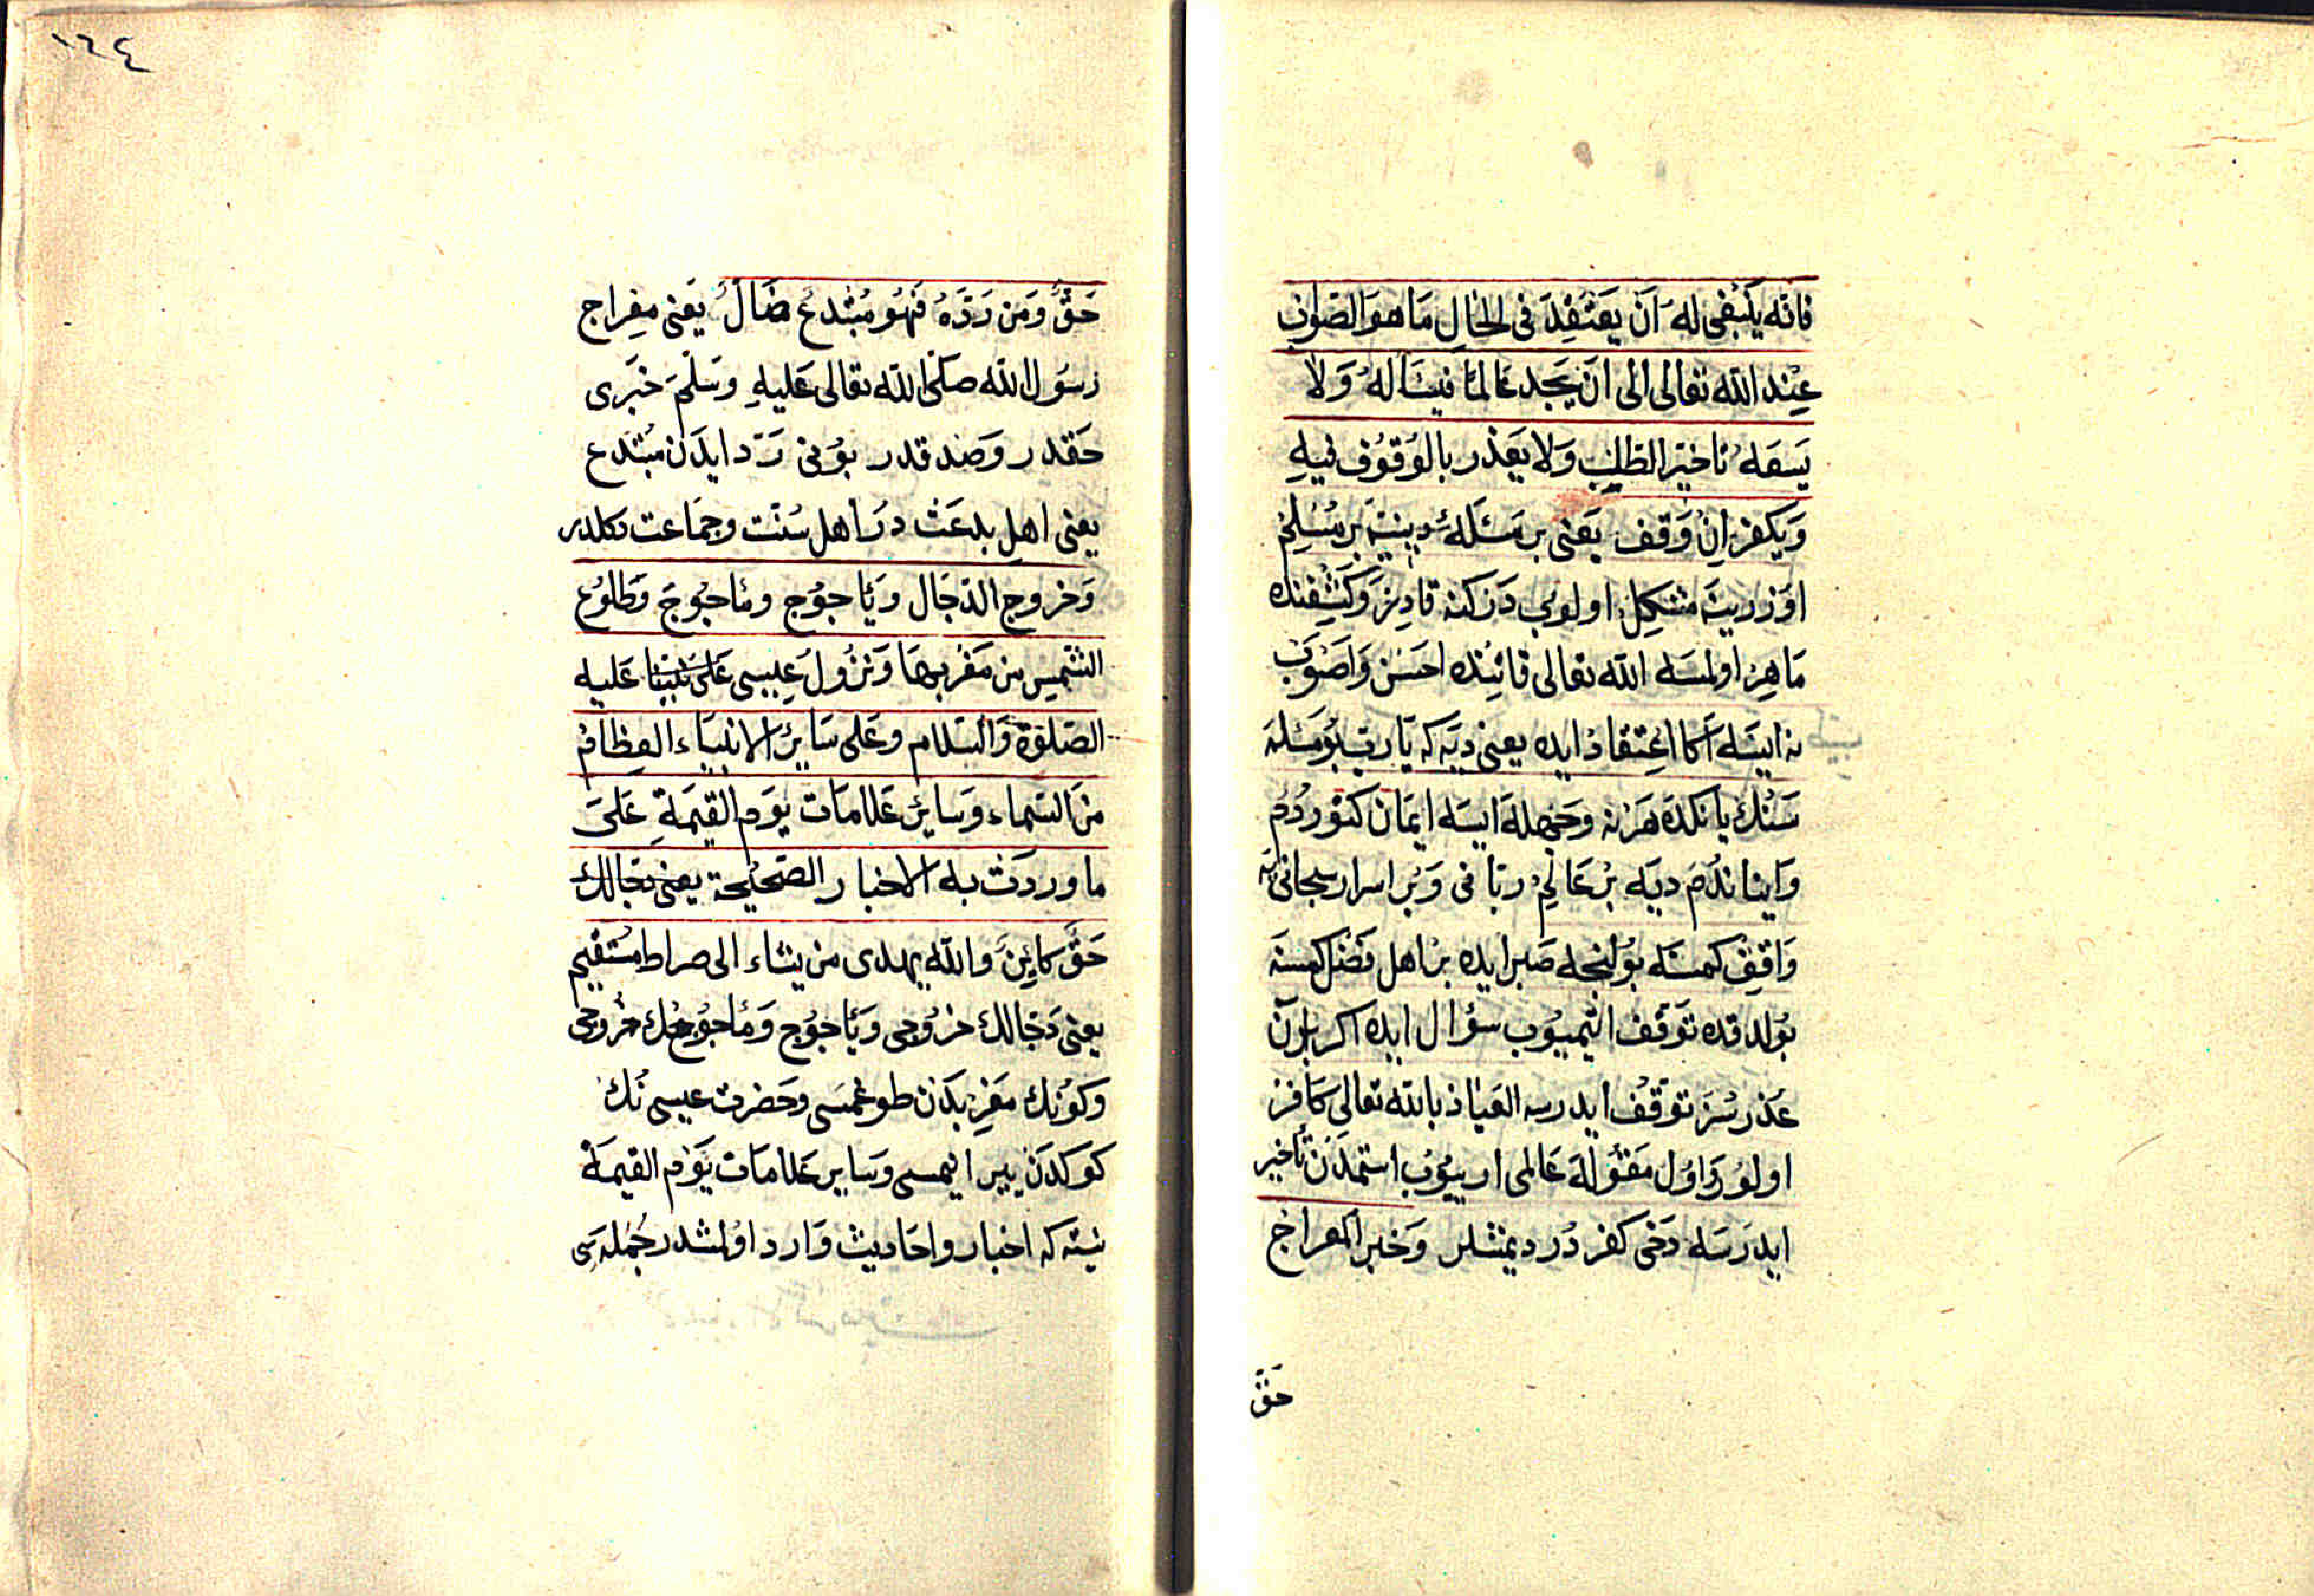 فانه ينبغى له ان يعتقد فى الحال ما هو الصواب
عند الله تعالى الى ان يجد عالما فيساله ولا
يسعه تاخير الطلب ولا يعذر بالوقوف فيه
ويكفر ان وقف يعنى بر مسئلهٔ دينيه بر مسلم
اوزرينه مشكل اولوب درك كنه قادر وكشفنده
ماهر اولمسه الله تعالى قاتنده احسن واصوب
نه ايسه اكا اعتقاد ايده يعنى ديه كه يا رب بو مسئله
سنك يانكده هر نه وجهله ايسه ايمان كتوردم
واينا ندم ديه بر عالم ربانى وبر اسرار سبحانى يه
واقف كمسه بولنجه صبر ايده بر اهل فضل كمسنه
بولدقده توقف ايتميوب سؤال ايده اكر بلون
عذرسز توقف ايدرسه العياذ بالله تعالى كافر
اولور و اول مقوله عالمى اريوب استمدن تأخير
ايدرسه دخى كفر در ديمشلر وخبر المعراج
حق
١٦٤
حق ومن رده فهو مبتدع ضال يعنى معراج
رسول الله صلى الله تعالى عليه وسلم خبرى
حقدر وصدقدر بونى رد ايدن مبتدع
يعنى اهل بدعت در اهل سنت وجماعت دكلدر
وخروج الدجال وياجوج وماجوج وطلوع
الشمس من مغربها ونزول عيسى على نبينا عليه
الصلوة والسلام وعلى ساير الانبياء العظام
من السماء وساير علامات يوم القيمة على
ما وردت به الاخبار الصحيحة يعنى دجالك
حق كاين والله يهدى من يشاء الى صراط مستقيم
يعنى دجالك خروجى وياجوج وماجوجك خروجى
وكونك مغربدن طوغمسى وحضرت عيسى نك
كوكدن يره اينمسى وساير علامات يوم القيمة
نيته كه اخبار واحاديث وارد اولمشدر جمله سى